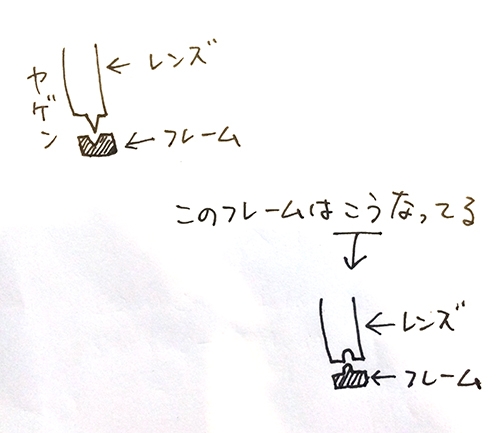 レンズ
ヤゲン
フレーム
このフレームはこうなってる
レンズ
フレーム